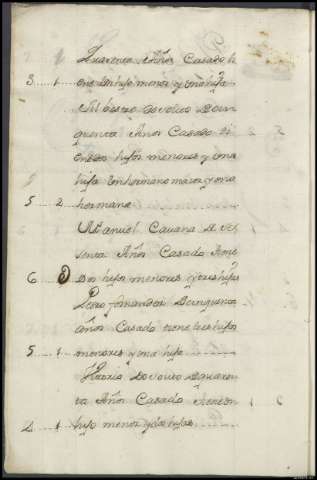 Quarenta Años Casado ti
3 1 ene Un hijo menor y una hija
Silbestre de Souto de Cin
quenta Años Casado ti
ene dos hijos menores y una
hija Un hermano maior y una
5 2 hermana
Manuel de
senta Años Casado tiene
6 Dos hijos menores y tres hijas
Pedro fernandez de cinquenta
años Casado tiene tres hijos
5 1 menores y una hija
de Souto de quaren
ta Años Casado tiene Un
4 1 hijo menor y dos hijas